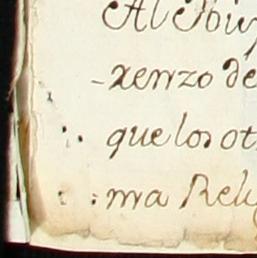 Al
-renzo de
que los ot
:ma Reli